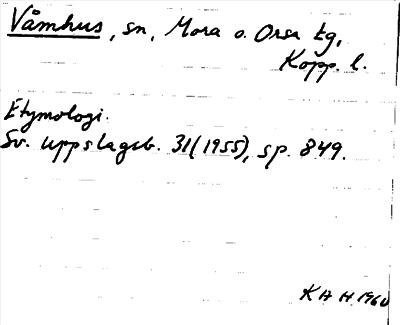 Våmhus, sn, Mora o. Orsa tg,
Kopp. l.
Etymologi.
Sv. uppslagsb. 31(1955), sp. 849.
KHH 1960